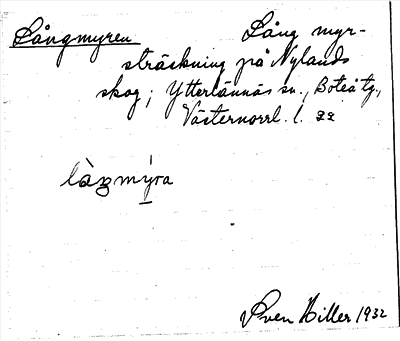 Långmyren Lång myr-
sträckning på Nylands
skog; Ytterlännäs sn., Boteå tg.,
Västernorrl. l. 22
làŋmýra
Sven Hiller 1932